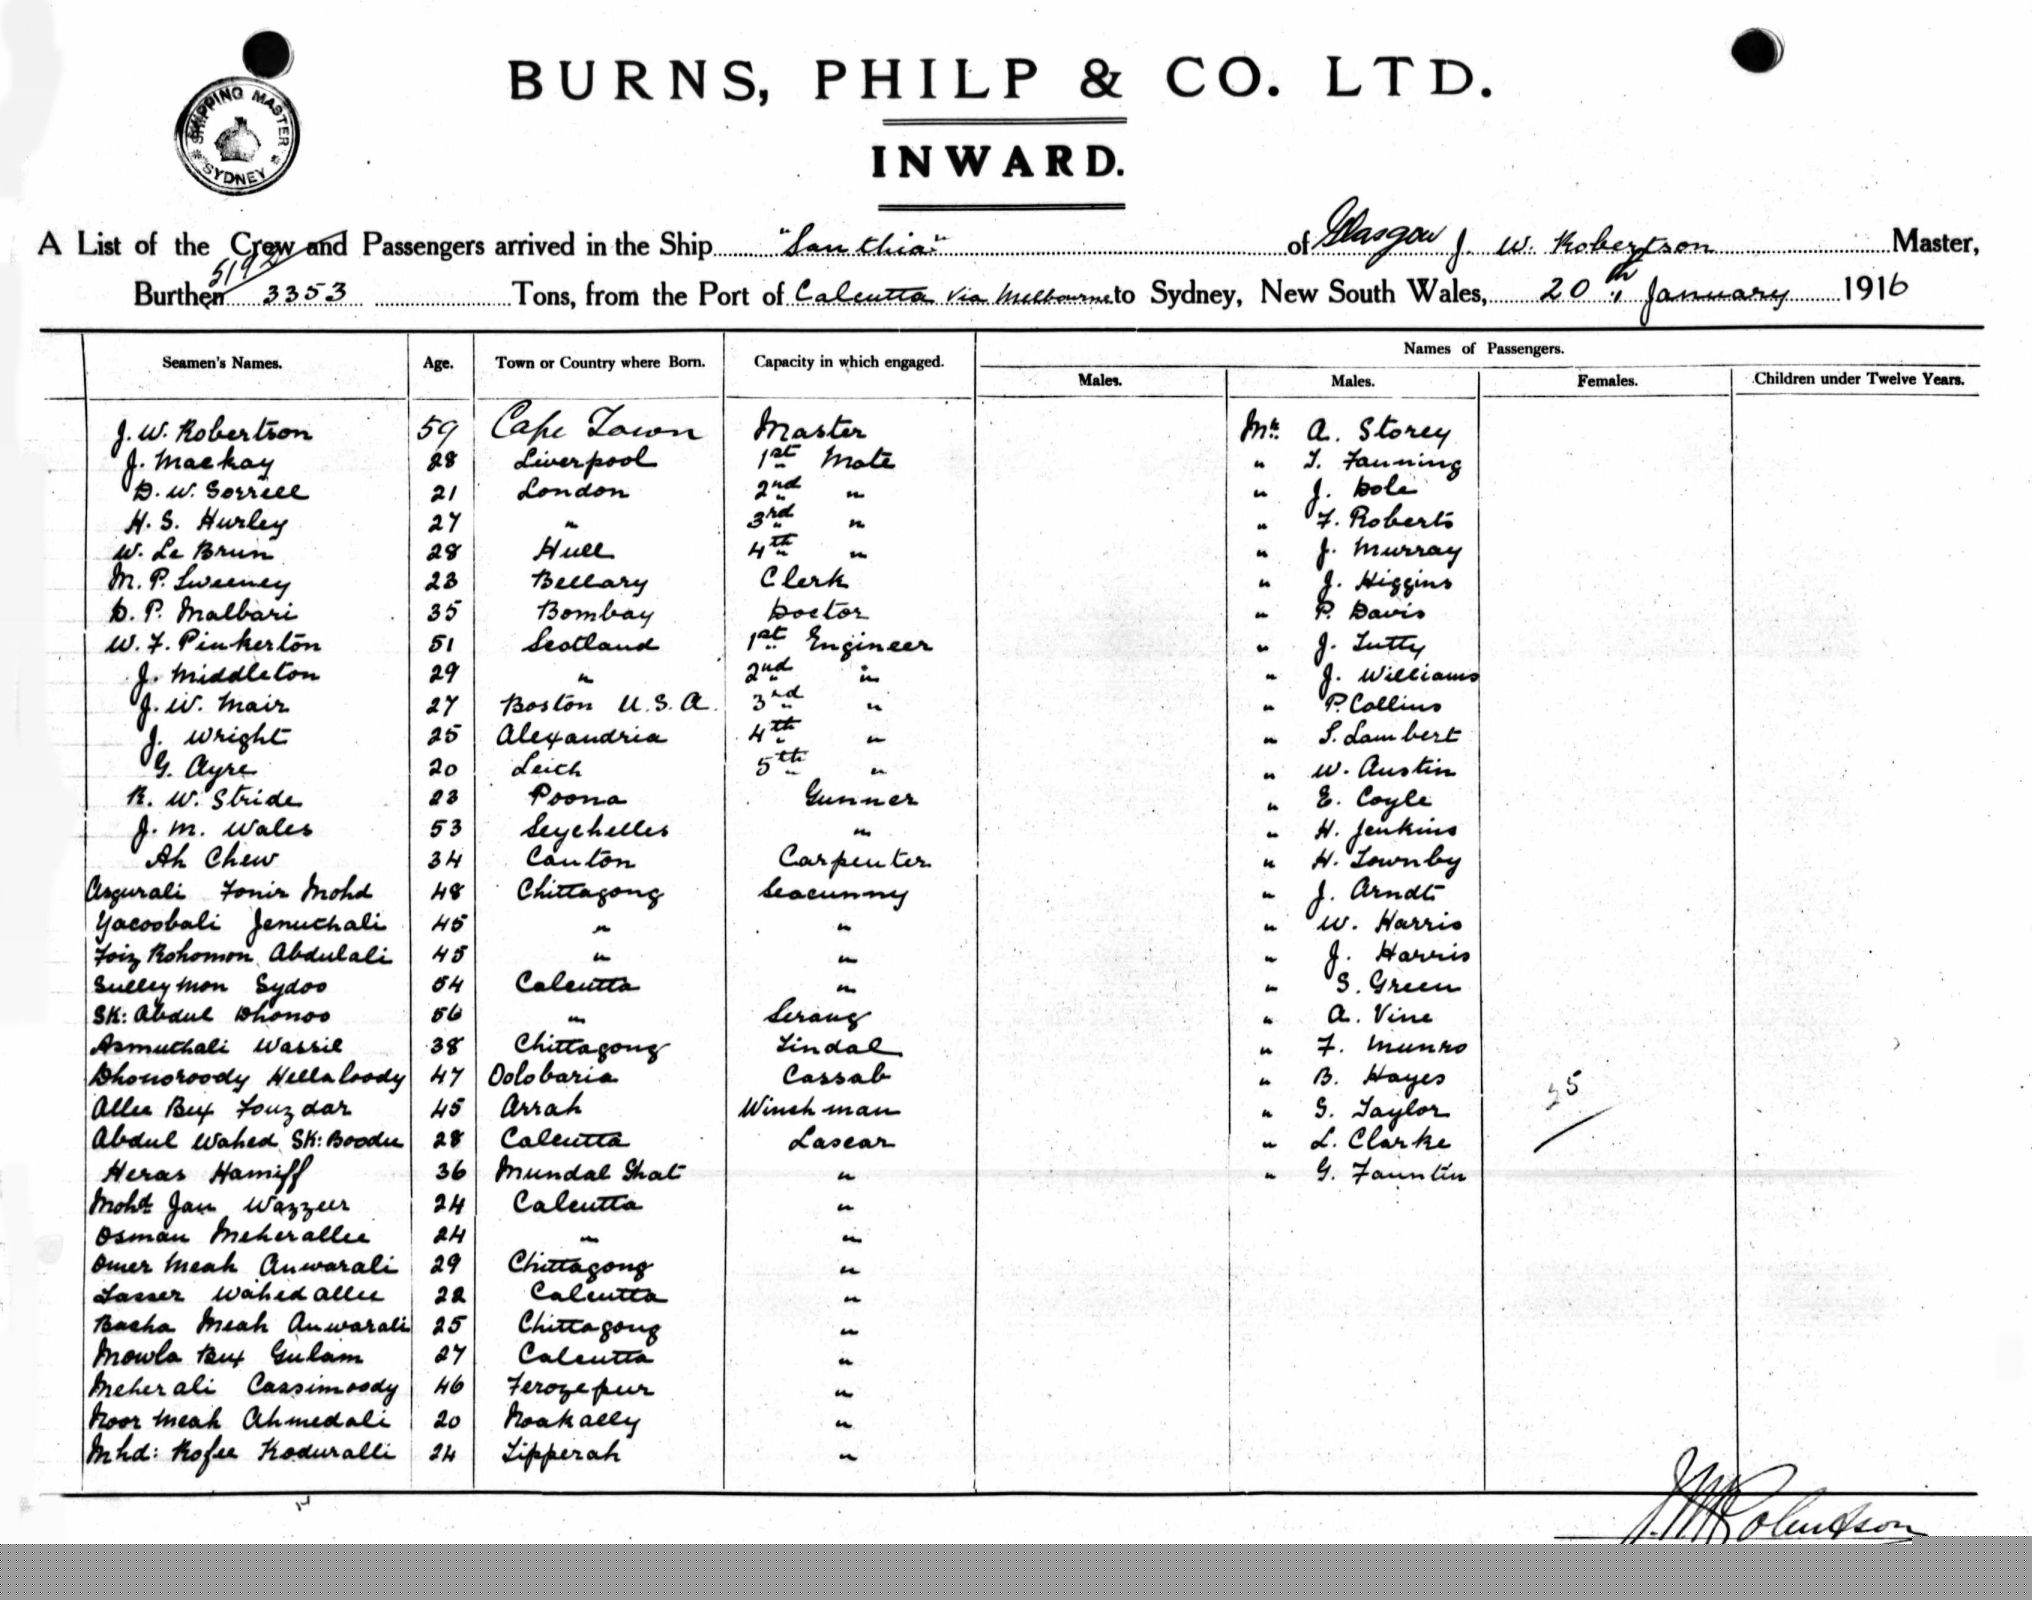 BURNS, PHILP & CO. LTD.
INWARD.
SHIPPING MASTER
SYDNEY
A List of the Crew and Passengers arrived in the Ship "Santhia" of Glasgow J. W. Robertson Master,
5192
Burthen 3353 Tons, from the Port of Calcutta via Melbourne to Sydney, New South Wales, 20th January 1916
Names of Passengers.
Seamen's Names. Age. Town or Country where Born. Capacity in which engaged. Males. Males. Females. Children under Twelve Years.
J. W. Robertson 59 Cape Town Master Mr. A. Storey
J. Mackay 28 Liverpool 1st Mate " T. Fanning
D. W. Sorrell 21 London 2nd " " J. Dole
H. S. Hurley 27 " 3rd " " F. Roberts
W. Le Brun 28 Hull 4th " " J. Murray
M. P. Sweeney 23 Bellary Clerk " J. Higgins
D. P. Malbari 35 Bombay Doctor " P. Davis
W. F. Pinkerton 51 Scotland 1st Engineer " J. Tutty
J. Middleton 29 " 2nd " " J. Williams
J. W. Mair 27 Boston U.S.A. 3rd " " P. Collins
J. Wright 25 Alexandria 4th " " S. Lambert
G. Ayre 20 Leith 5th " " W. Austin
R. W. Stride 23 Poona Gunner " E. Coyle
J. M. Wales 53 Seychelles " " H. Jenkins
Ah Chew 34 Canton Carpenter " H. Townby
Asgurali Fonir Mohd 48 Chittagong Seacunny " J. Arndt
Yacoobali Jenuthali 45 " " " W. Harris
Foiz Rohomon Abdulali 45 " " " J. Harris
Sulleymon Sydoo 54 Calcutta " " S. Green
SK: Abdul Dhonoo 56 " Serang " A. Vine
Asmuthali Wassil 38 Chittagong Tindal " F. Munro
Dhonoroody Hellaloody 47 Oolobaria Cassab " B. Hayes
Allee Bux Fouzdar 45 Arrah Winchman " S. Taylor
25
Abdul Wahed SK: Boodu 28 Calcutta Lascar " L. Clarke
Heras Haniff 36 Mundal Ghat " " G. Fauntin
Mohd. Jan Wazzeer 24 Calcutta "
Osman Meherallee 24 " "
Omer Meah Anwarali 29 Chittagong "
Lasser Wahedallee 22 Calcutta "
Bacha Meah Anwarali 25 Chittagong "
Mowla Bux Gulam 27 Calcutta "
Meherali Cassimoody 46 Ferozepur "
Noor Meah Ahmedali 20 Noakally "
Mhd: Rofee Koduralli 24 Tipperah "
J. W. Robertson